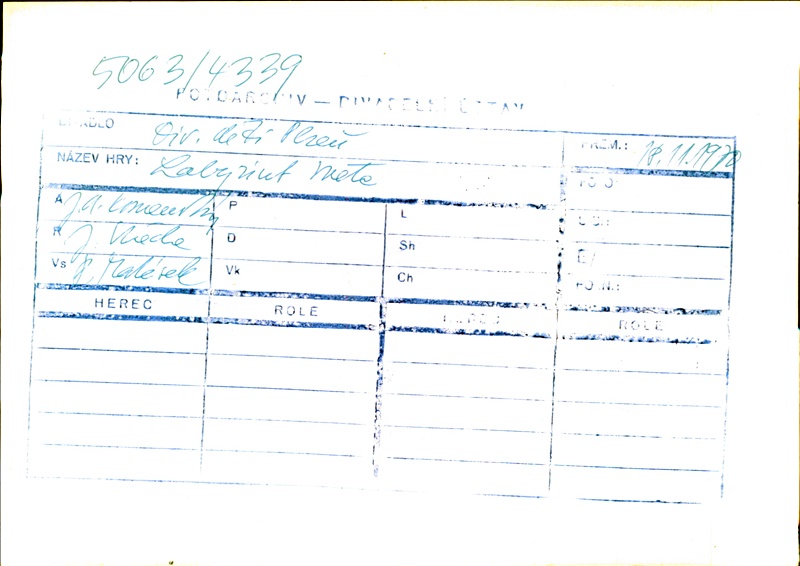 5063/4339
FOTOARCHIV — DIVADELNÍ ÚSTAV
DIVADLO Div. dětí Plzeň PREM.: 18.11.1970
NÁZEV HRY: Labyrint světa FOTO:
A J.A. Komenský P L
R J. D Sh
Vs Vk Ch
HEREC ROLE HEREC ROLE